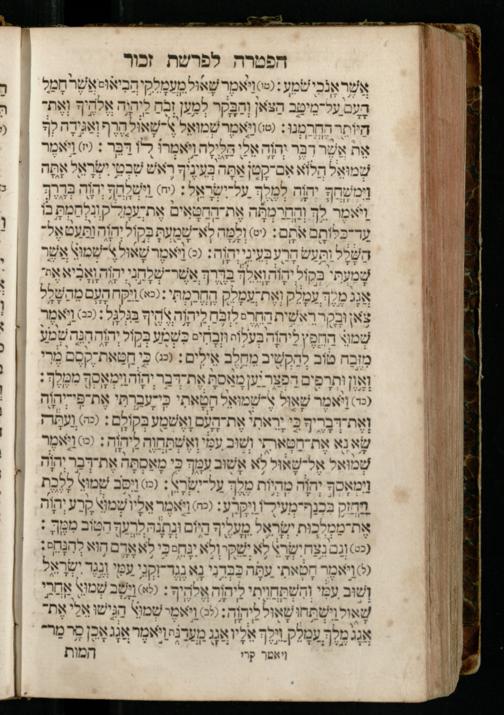 הפטרה לפרשת זכור
אֲשֶׁר אָנֹכִי שֹׁמֵעַ׃ (טו) וַיֹּאמֶר שָׁאוּל מֵעֲמָלֵקִי הֱבִיאוּם אֲשֶׁר חָמַל
הָעָם עַל־מֵיטַב הַצֹּאן וְהַבָּקָר לְמַעַן זְבֹחַ לַיהוָה אֱלֹהֶיךָ וְאֶת־
הַיּוֹתֵר הֶחֱרַמְנוּ׃ (טז) וַיֹּאמֶר שְׁמוּאֵל אֶל־שָׁאוּל הֶרֶף וְאַגִּידָה לְּךָ
אֵת אֲשֶׁר דִּבֶּר יְהוָה אֵלַי הַלָּיְלָה וַיֹּאמְרוּ לוֹ דַּבֵּר׃ (יז) וַיֹּאמֶר
שְׁמוּאֵל הֲלוֹא אִם־קָטֹן אַתָּה בְּעֵינֶיךָ רֹאשׁ שִׁבְטֵי יִשְׂרָאֵל אָתָּה
וַיִּמְשָׁחֲךָ יְהוָה לְמֶלֶךְ עַל־יִשְׂרָאֵל׃ (יח) וַיִּשְׁלָחֲךָ יְהוָה בְּדָרֶךְ
וַיֹּאמֶר לֵךְ וְהַחֲרַמְתָּה אֶת־הַחַטָּאִים אֶת־עֲמָלֵק וְנִלְחַמְתָּ בוֹ
עַד־כַּלּוֹתָם אֹתָם׃ (יט) וְלָמָּה לֹא־שָׁמַעְתָּ בְּקוֹל יְהוָה וַתַּעַט אֶל־
הַשָּׁלָל וַתַּעַשׂ הָרַע בְּעֵינֵי יְהוָה׃ (כ) וַיֹּאמֶר שָׁאוּל אֶל־שְׁמוּאֵל אֲשֶׁר
שָׁמַעְתִּי בְּקוֹל יְהוָה וָאֵלֵךְ בַּדֶּרֶךְ אֲשֶׁר־שְׁלָחַנִי יְהוָה וָאָבִיא אֶת־
אֲגַג מֶלֶךְ עֲמָלֵק וְאֶת־עֲמָלֵק הֶחֱרַמְתִּי׃ (כא) וַיִּקַּח הָעָם מֵהַשָּׁלָל
צֹאן וּבָקָר רֵאשִׁית הַחֵרֶם לִזְבֹּחַ לַיהוָה אֱלֹהֶיךָ בַּגִּלְגָּל׃ (כב) וַיֹּאמֶר
שְׁמוּאֵל הַחֵפֶץ לַיהוָה בְּעֹלוֹת וּזְבָחִים כִּשְׁמֹעַ בְּקוֹל יְהוָה הִנֵּה שְׁמֹעַ
מִזֶּבַח טוֹב לְהַקְשִׁיב מֵחֵלֶב אֵילִים׃ (כג) כִּי חַטַּאת־קֶסֶם מֶרִי
וְאָוֶן וּתְרָפִים הַפְצַר יַעַן מָאַסְתָּ אֶת־דְּבַר יְהוָה וַיִּמְאָסְךָ מִמֶּלֶךְ׃
(כד) וַיֹּאמֶר שָׁאוּל אֶל־שְׁמוּאֵל חָטָאתִי כִּי־עָבַרְתִּי אֶת־פִּי־יְהוָה
וְאֶת־דְּבָרֶיךָ כִּי יָרֵאתִי אֶת־הָעָם וָאֶשְׁמַע בְּקוֹלָם׃ (כה) וְעַתָּה
שָׂא נָא אֶת־חַטָּאתִי וְשׁוּב עִמִּי וְאֶשְׁתַּחֲוֶה לַיהוָה׃ (כו) וַיֹּאמֶר
שְׁמוּאֵל אֶל־שָׁאוּל לֹא אָשׁוּב עִמָּךְ כִּי מָאַסְתָּה אֶת־דְּבַר יְהוָה
וַיִּמְאָסְךָ יְהוָה מִהְיוֹת מֶלֶךְ עַל־יִשְׂרָאֵל׃ (כז) וַיִּסֹּב שְׁמוּאֵל לָלֶכֶת
וַיַּחֲזֵק בִּכְנַף־מְעִילוֹ וַיִּקָּרַע׃ (כח) וַיֹּאמֶר אֵלָיו שְׁמוּאֵל קָרַע יְהוָה
אֶת־מַמְלְכוּת יִשְׂרָאֵל מֵעָלֶיךָ הַיּוֹם וּנְתָנָהּ לְרֵעֲךָ הַטּוֹב מִמֶּךָּ׃
(כט) וְגַם נֵצַח יִשְׂרָאֵל לֹא יְשַׁקֵּר וְלֹא יִנָּחֵם כִּי לֹא אָדָם הוּא לְהִנָּחֵם׃
(ל) וַיֹּאמֶר חָטָאתִי עַתָּה כַּבְּדֵנִי נָא נֶגֶד־זִקְנֵי עַמִּי וְנֶגֶד יִשְׂרָאֵל
וְשׁוּב עִמִּי וְהִשְׁתַּחֲוֵיתִי לַיהוָה אֱלֹהֶיךָ׃ (לא) וַיָּשָׁב שְׁמוּאֵל אַחֲרֵי
שָׁאוּל וַיִּשְׁתַּחוּ שָׁאוּל לַיהוָה׃ (לב) וַיֹּאמֶר שְׁמוּאֵל הַגִּישׁוּ אֵלַי אֶת־
אֲגַג מֶלֶךְ עֲמָלֵק וַיֵּלֶךְ אֵלָיו אֲגַג מַעֲדַנֹּת וַיֹּאמֶר אֲגָג אָכֵן סָר מַר־
ויאמר קרי הַמָּוֶת